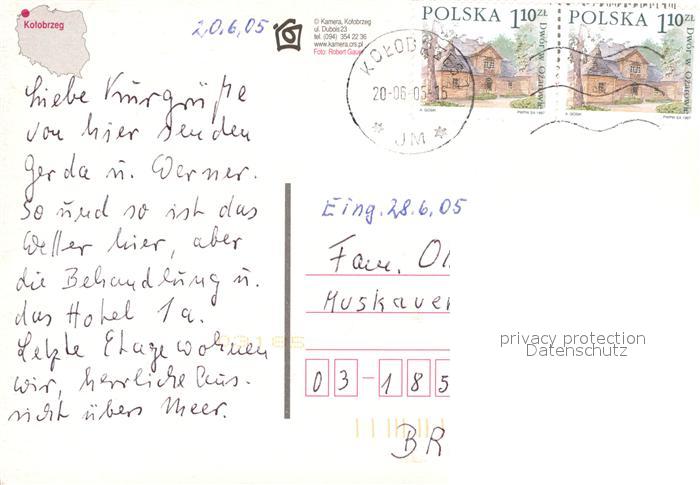 Kołobrzeg
20.6.05
© Kamera, Kołobrzeg
ul. Dubois23
tel. (094) 354 22 36
www.kamera.oni.pl
Foto: Robert Gauer
POLSKA 1,10 ZŁ
Dwór w Ożarowie
POLSKA 1,10 ZŁ
Dwór w Ożarowie
KOŁOBRZEG
20-06-05-15
JM
Liebe Kurgrüße
von hier senden
Gerda u. Werner.
So und so ist das
Wetter hier, aber
die Behandlung u.
das Hotel 1a.
Letzte Etage wohnen
wir, herrliche Aus-
sicht übers Meer.
Eing. 28.6.05
Fam. Ol
Muskauer
03185
03-185
BR
privacy protection
Datenschutz